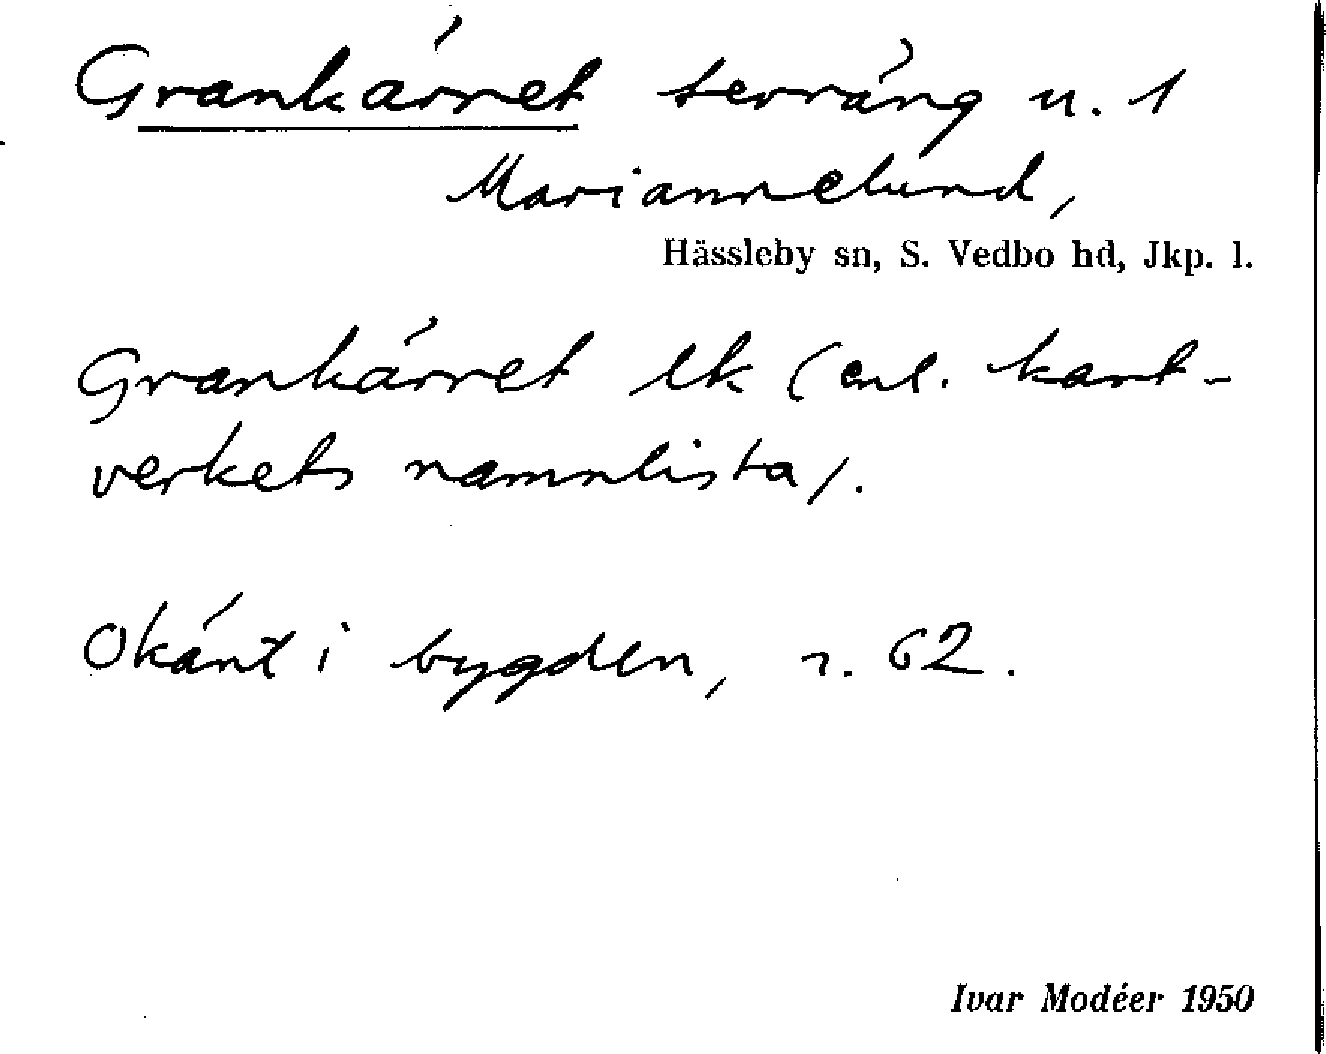 Grankärret terräng u. 1
Mariannelund,
Hässleby sn, S. Vedbo hd, Jkp. l.
Grankärret lk (enl. kart-
verkets namnlista).
Okänt i bygden, r. 62.
Ivar Modéer 1950